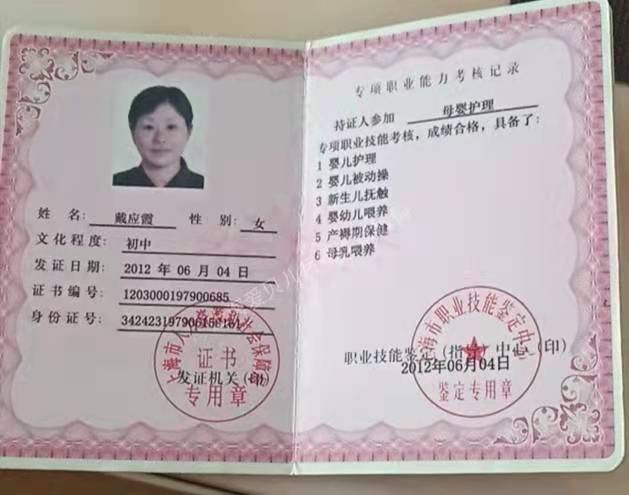 姓 名: 戴应霞 性 别: 女
文化程度: 初中
发证日期: 2012 年 06 月 04 日
证书编号: 1203000197900685
身份证号:
证书
发证机关(印)
专用章
专项职业能力考核记录
持证人参加 母婴护理
专项职业技能考核,成绩合格,具备了:
1 婴儿护理
2 婴儿被动操
3 新生儿抚触
4 婴幼儿喂养
5 产褥期保健
6 母乳喂养
海市职业技能鉴定中
职业技能鉴定(指 )中心(印)
2012年06月04日
鉴定专用章